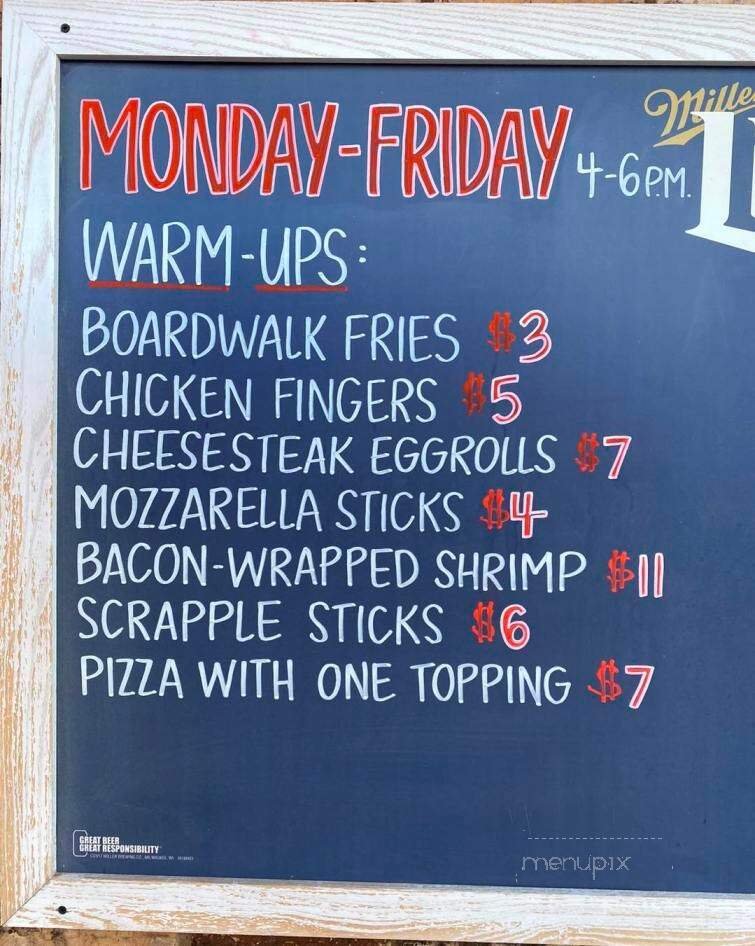 Miller
MONDAY-FRIDAY 4-6 P.M.
WARM-UPS:
BOARDWALK FRIES $3
CHICKEN FINGERS $5
CHEESESTEAK EGGROLLS $7
MOZZARELLA STICKS $4
BACON-WRAPPED SHRIMP $11
SCRAPPLE STICKS $6
PIZZA WITH ONE TOPPING $7
GREAT BEER
GREAT RESPONSIBILITY
menupix